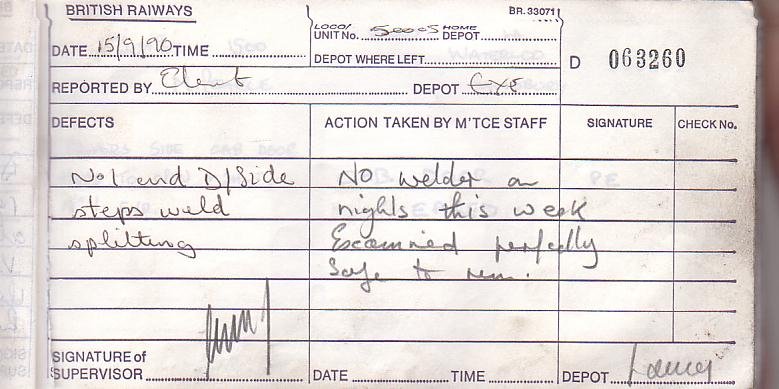 BRITISH RAIWAYS
BR.33071
LOCO/ UNIT No. 50005 HOME DEPOT
DATE 15/9/90 TIME
DEPOT WHERE LEFT
D 063260
REPORTED BY DEPOT EXE
DEFECTS ACTION TAKEN BY M'TCE STAFF SIGNATURE CHECK No.
No1 end D/Side No welder on
steps weld nights this week
splitting Examined perfectly
Safe to run.
SIGNATURE of
SUPERVISOR DATE TIME DEPOT